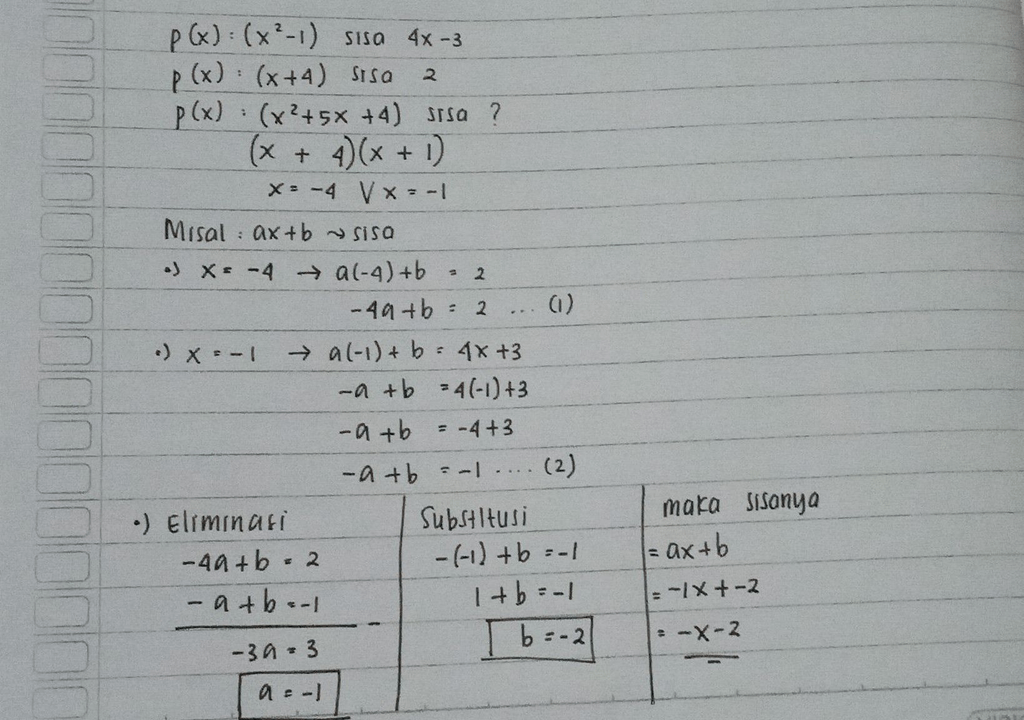 p(x) : (x²-1) sisa 4x-3
p(x) : (x+4) sisa 2
p(x) : (x²+5x+4) sisa ?
(x + 4)(x + 1)
x = -4 V x = -1
Misal : ax+b ~> sisa
•) x = -4 → a(-4)+b = 2
-4a+b = 2 ... (1)
•) x = -1 → a(-1)+ b = 4x+3
-a +b = 4(-1)+3
-a +b = -4+3
-a +b = -1 .... (2)
•) Eliminasi
-4a+b = 2
-a+b = -1
-
-3a = 3
a = -1
Substitusi
-(-1) +b = -1
1+b = -1
b = -2
maka sisanya
= ax+b
= -1x+-2
= -x-2